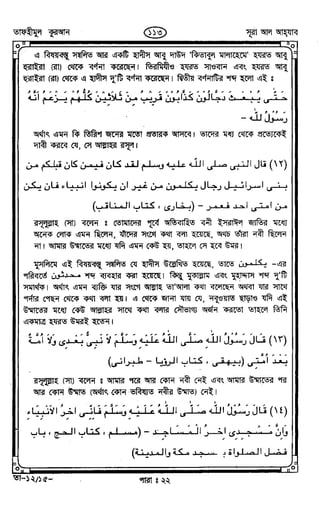 তাফহীমুল কুরআন
১১৩
সূরা আল আহযাব
এ বিষয়বস্তু সম্বলিত আর একটি হাদীস আবু দাউদ 'কিতাবুল মালাহেমে' হযরত আবু
হুরাইরা (রা) থেকে বর্ণনা করেছেন। তিরমিযীও হযরত সাওবান এবং হযরত আবু
হুরাইরা (রা) থেকে এ হাদীস দু'টি বর্ণনা করেছেন। দ্বিতীয় বর্ণনাটির শব্দ হলো এই :
حتى يبعث دجالون كذابون قريب من ثلاثين كلهم يزعم انه
رسول الله -
অর্থাৎ এমন কি তিরিশ জনের মতো প্রতারক আসবে। তাদের মধ্য থেকে প্রত্যেকেই
দাবী করবে যে, সে আল্লাহর রসূল।
(١٢) قال النبى صلى الله عليه وسلم لقد كان فيمن كان قبلكم من
بنى اسرائيل رجال يكلمون من غير ان يكونوا انبياء فان يكن
من امتى احد فعمر - (بخارى ، كتاب المناقب)
রসূলুল্লাহ (সা) বলেন : তোমাদের পূর্বে অতিবাহিত বনী ইসরাঈল জাতির মধ্যে
অনেক লোক এমন ছিলেন, যাঁদের সংগে কথা বলা হয়েছে, অথচ তাঁরা নবী ছিলেন
না। আমার উম্মাতের মধ্যে যদি এমন কেউ হয়, তাহলে সে হবে উমর।
মুসলিমে এই বিষয়বস্তু সম্বলিত যে হাদীস উল্লেখিত হয়েছে, তাতে يكلمون -এর
পরিবর্তে محدثون শব্দ ব্যবহার করা হয়েছে। কিন্তু মুকাল্লাম এবং মুহাদ্দাস শব্দ দু'টি
সমার্থক। অর্থাৎ এমন ব্যক্তি যার সংগে আল্লাহ তা'আলা কথা বলেছেন অথবা যার সাথে
পর্দার পেছন থেকে কথা বলা হয়। এ থেকে জানা যায় যে, নবুওয়াত ছাড়াও যদি এই
উম্মাতের মধ্যে কেউ আল্লাহর সাথে কথা বলার সৌভাগ্য অর্জন করতো তাহলে তিনি
একমাত্র হযরত উমরই হতেন।
(١٣) قال رسول الله صلى الله عليه وسلم لا نبى بعدى ولا امة
بعد امتى (بيهقى ، كتاب الرويا - طبرانى)
রসূলুল্লাহ (সা) বলেন : আমার পরে আর কোন নবী নেই এবং আমার উম্মাতের পর
আর কোন উম্মাত (অর্থাৎ কোন ভবিষ্যত নবীর উম্মাত) নেই।
(١٤) قال رسول الله صلى الله عليه وسلم فانى اخر الانبياء
وان مسجدى اخر المساجد - (مسلم ، كتاب الحج ، باب
فضل الصلواة بمسجد مكة والمدينة)
তা-১২/১৫-
পারা : ২২